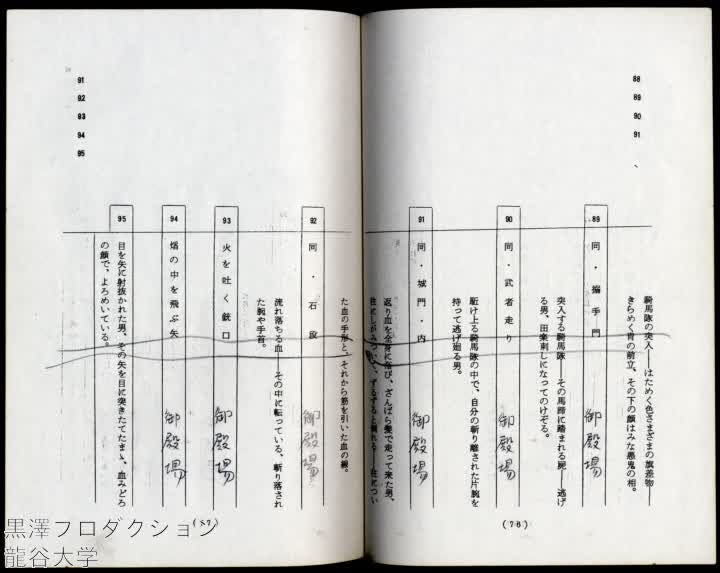 88
89
90
91
騎馬隊の突入――はためく色さまざまの旗差物――
きらめく冑の前立、その下の顔はみな悪鬼の相。
89 同・搦手門
突入する騎馬隊――その馬蹄に踏まれる屍――逃げ
る男、田楽刺しになってのけぞる。
御殿場
90 同・武者走り
駈け上る騎馬隊の中で、自分の斬り離された片腕を
持って逃げ廻る男。
御殿場
91 同・城門・内
返り血を全身に浴び、ざんばら髪で走って来た男、
柱にしがみついて、ずるずると崩れる――柱につい
御殿場
(76)
た血の手形と、それから筋を引いた血の線。
92 同・石段
流れ落ちる血――その中に転っている、斬り落され
た腕や手首。
御殿場
93 火を吐く銃口
御殿場
94 焔の中を飛ぶ矢
御殿場
95
目を矢に射抜かれた男、その矢を目に突きたてたまゝ、血みどろ
の顔で、よろめいている。
91
92
93
94
95
黒澤プロダクション
龍谷大学